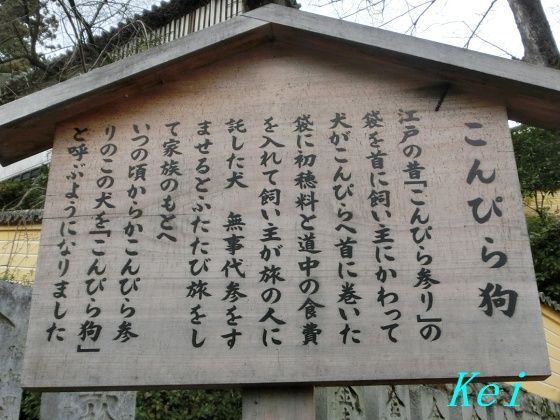 こんぴら狗
江戸の昔「こんぴら参り」の
袋を首に飼い主にかわって
犬がこんぴらへ首に巻いた
袋に初穂料と道中の食費
を入れて飼い主が旅の人に
託した犬　無事代参をす
ませるとふたたび旅をし
て家族のもとへ
いつの頃からかこんぴら参
りのこの犬を「こんぴら狗」
と呼ぶようになりました
Kei